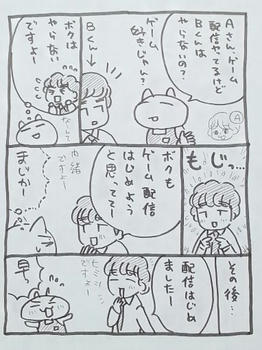 Aさん、ゲーム
配信やってるけど
Bくんは
やらないの?
ゲーム
好きじゃん?
A
Bくん
↓
ボクは
やらない
ですよー
もじっ…
ボクも
ゲーム配信
はじめよう
と思ってて〜
内緒
ですよー
まじかー
その後…
配信はじめ
ましたー
ヒミツ
ですよー
早っ